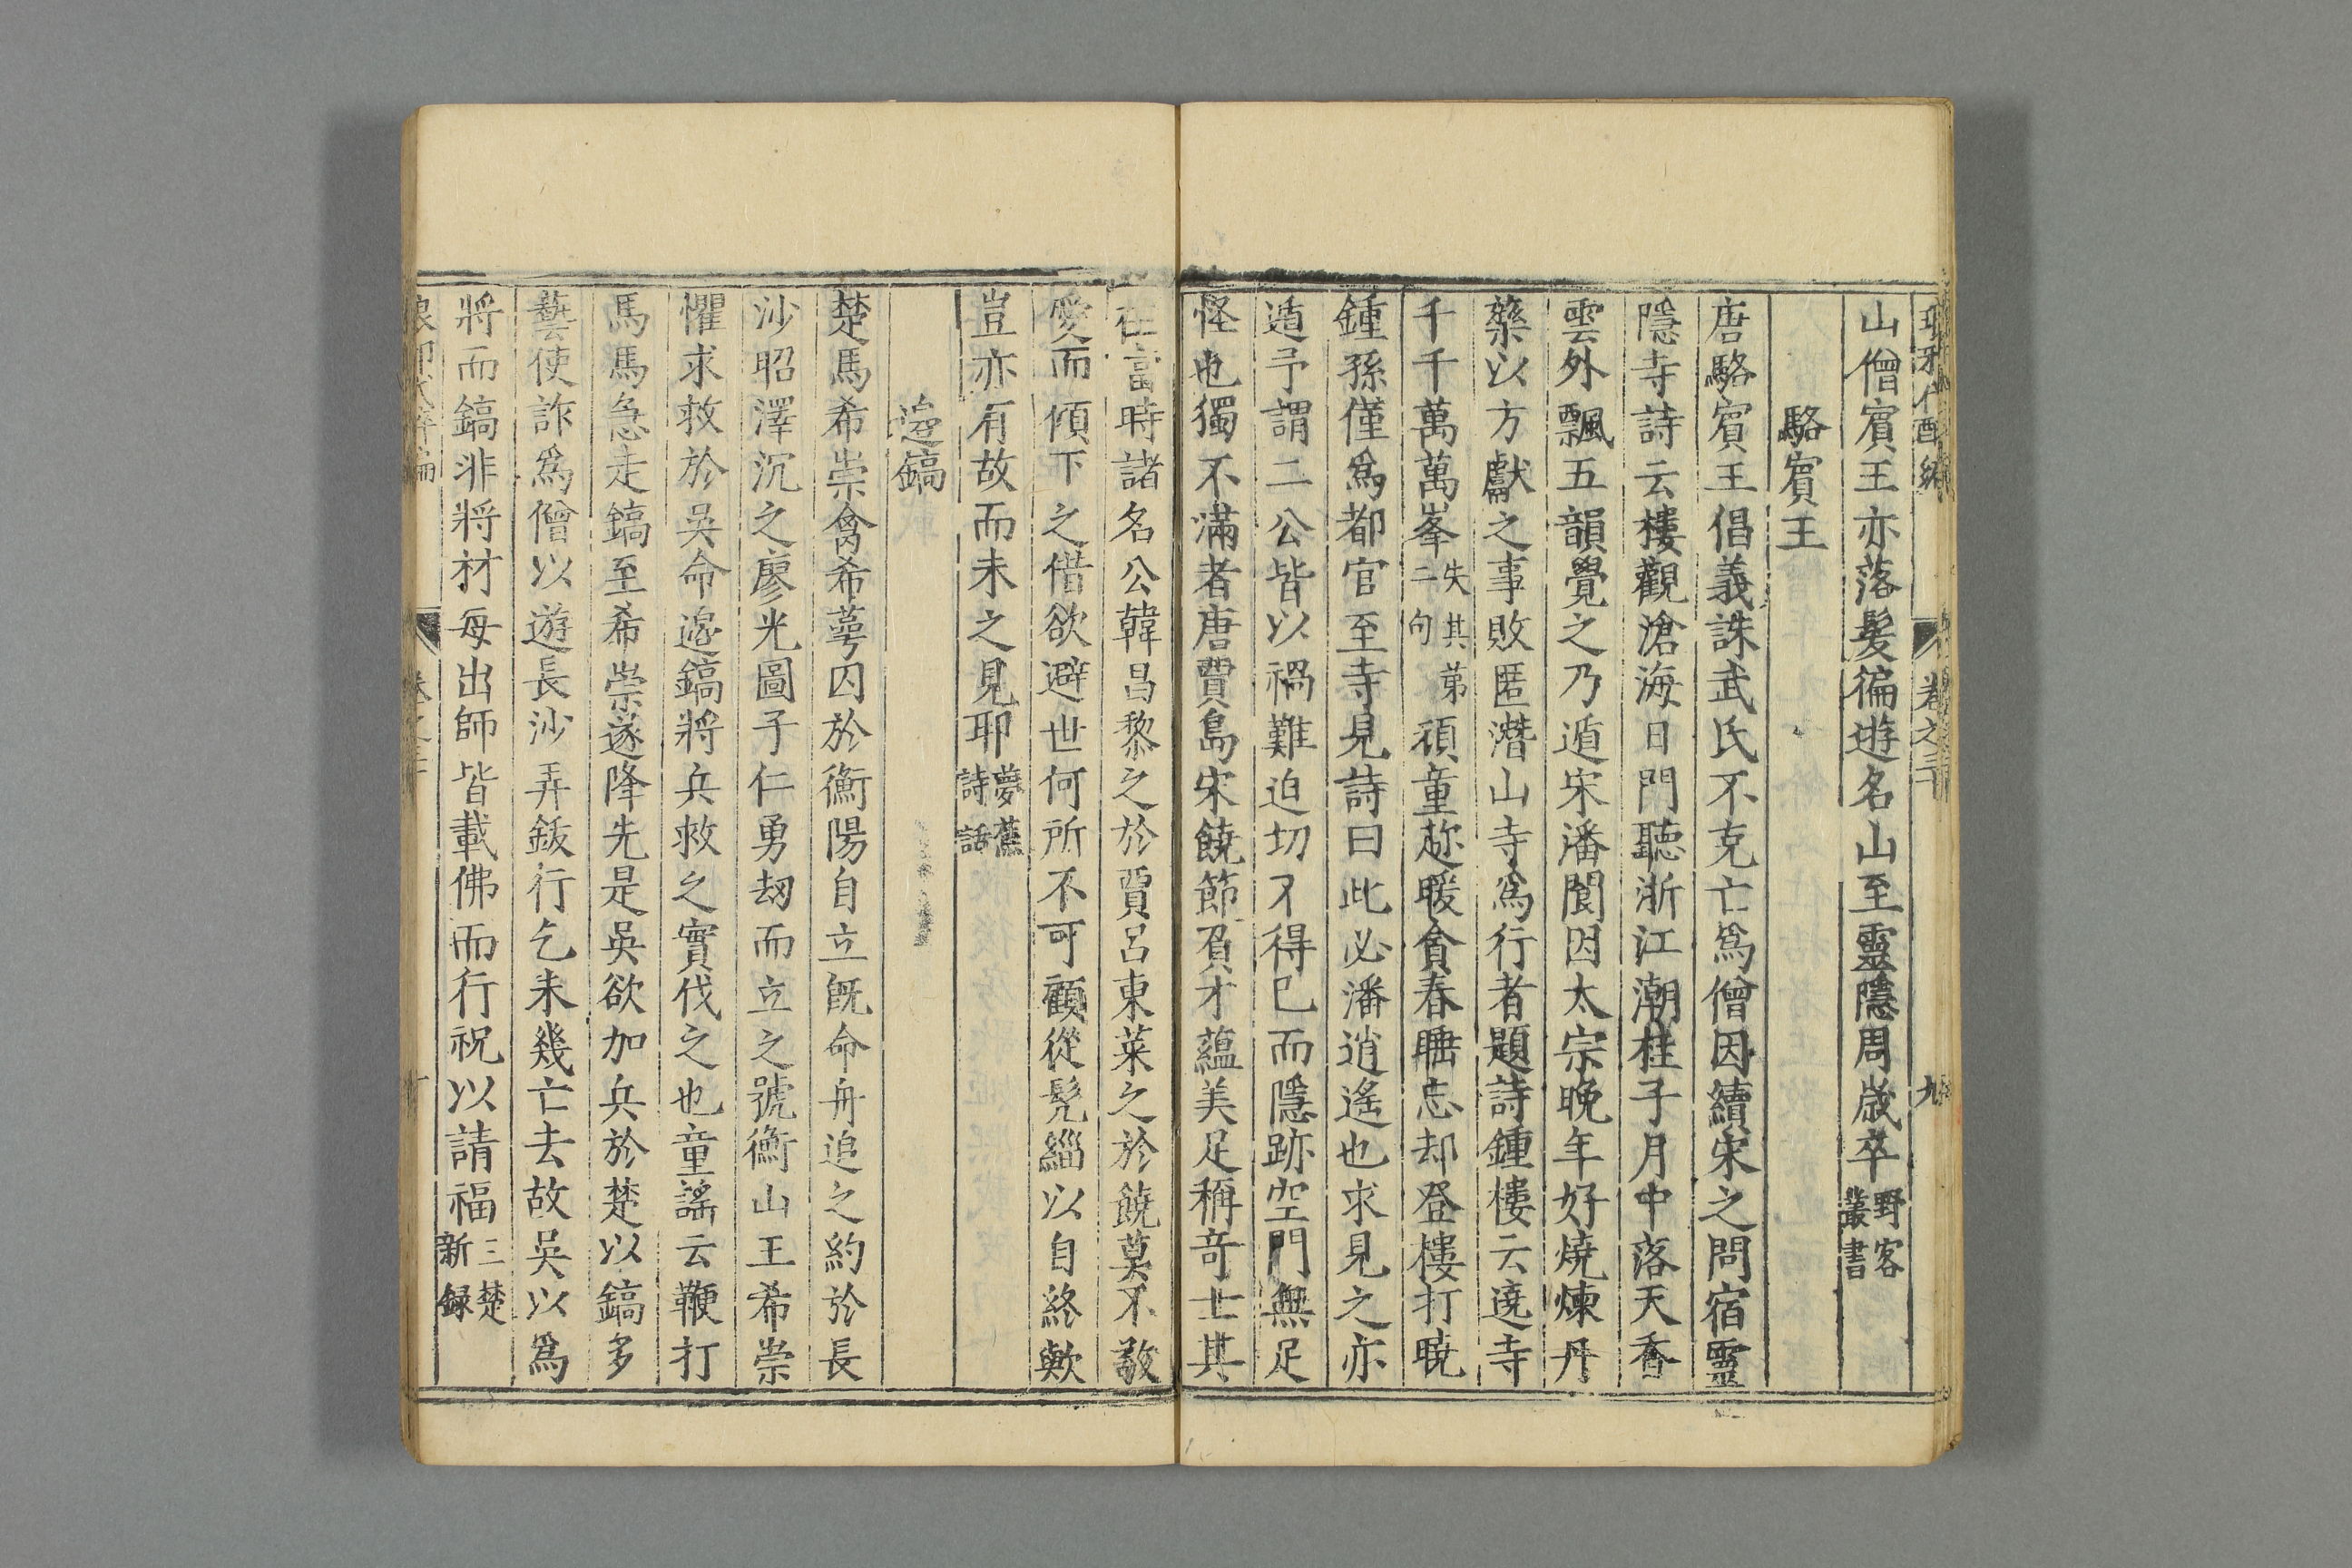 卷之三十
九
山僧賓王亦落髮徧遊名山至靈隱周歲卒野客叢書
駱賓王
唐駱賓王倡義誅武氏不克亡爲僧因續宋之問宿靈
隱寺詩云樓觀滄海日門聽浙江潮桂子月中落天香
雲外飄五韻覺之乃遁宋潘閬因太宗晚年好燒煉丹
藥以方獻之事敗匿潛山寺爲行者題詩鍾樓云遶寺
千千萬萬峯失其弟二句頑童趂暖貪春睡忘却登樓打曉
鍾孫僅爲都官至寺見詩曰此必潘逍遙也求見之亦
遁予謂二公皆以禍難迫切不得已而隱跡空門無足
怪也獨不滿者唐賈島宋饒節負才蘊美足稱奇士其
在當時諸名公韓昌黎之於賈呂東萊之於饒莫不敬
愛而傾下之借欲避世何所不可顧從髠緇以自終歟
豈亦有故而未之見耶夢蕉詩話
邉鎬
楚馬希崇禽希萼囚於衡陽自立旣命舟追之約於長
沙昭澤沉之廖光圖子仁勇刼而立之號衡山王希崇
懼求救於吳命邉鎬將兵救之實伐之也童謠云鞭打
馬馬急走鎬至希崇遂降先是吳欲加兵於楚以鎬多
藝使詐爲僧以遊長沙弄鈸行乞未幾亡去故吳以爲
將而鎬非將材每出師皆載佛而行祝以請福三楚新録